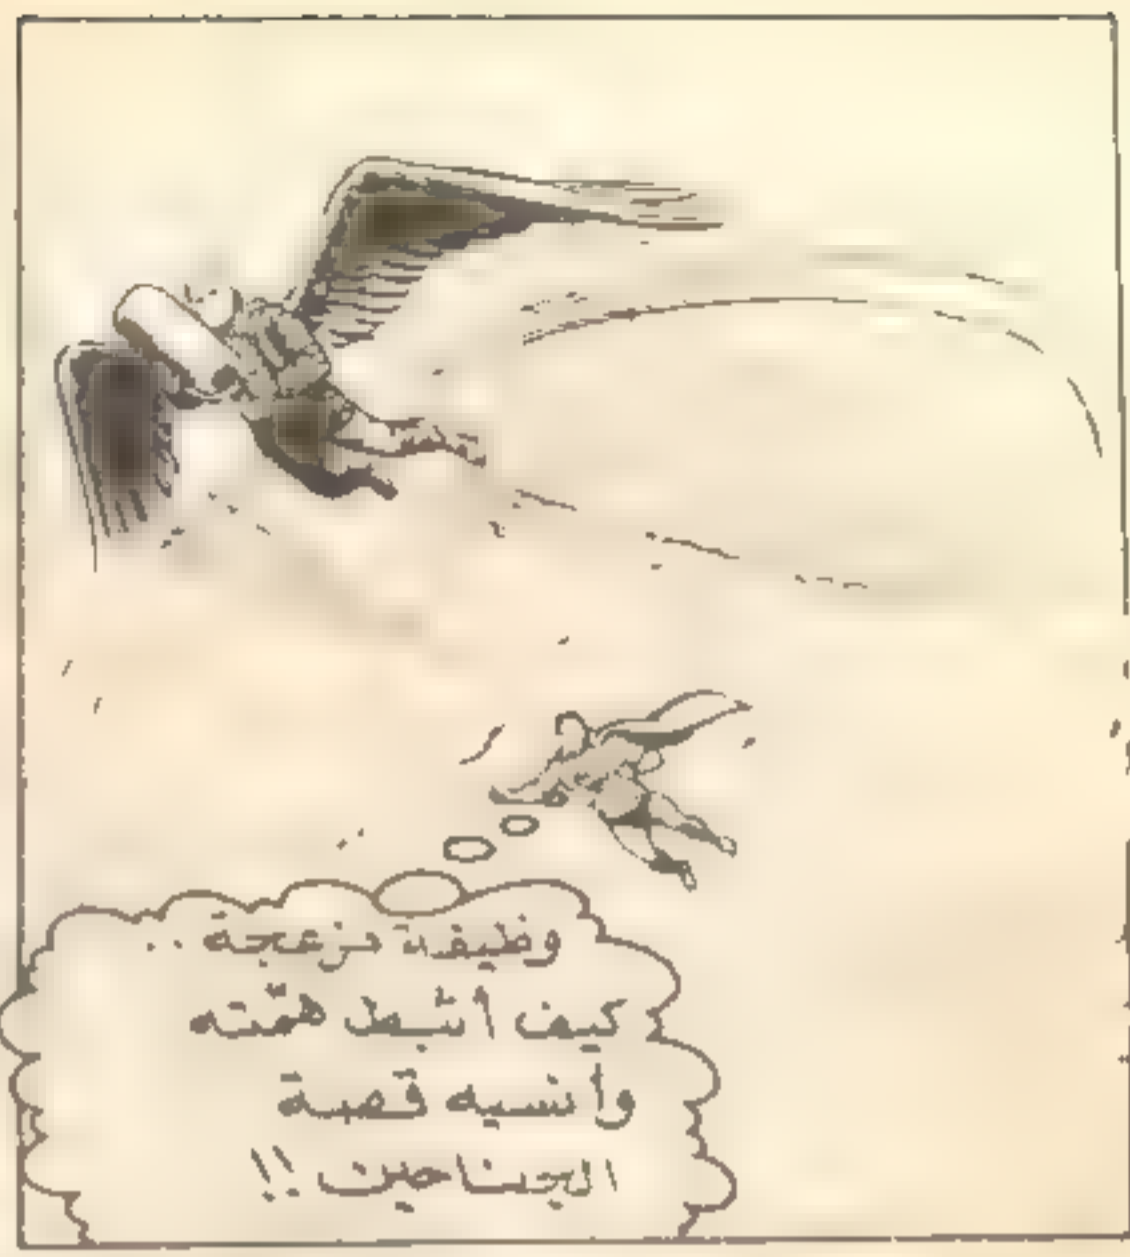 وظيفة مزعجة ..
كيف أثبط همّته
وانسيه قصة
الجناحين !!